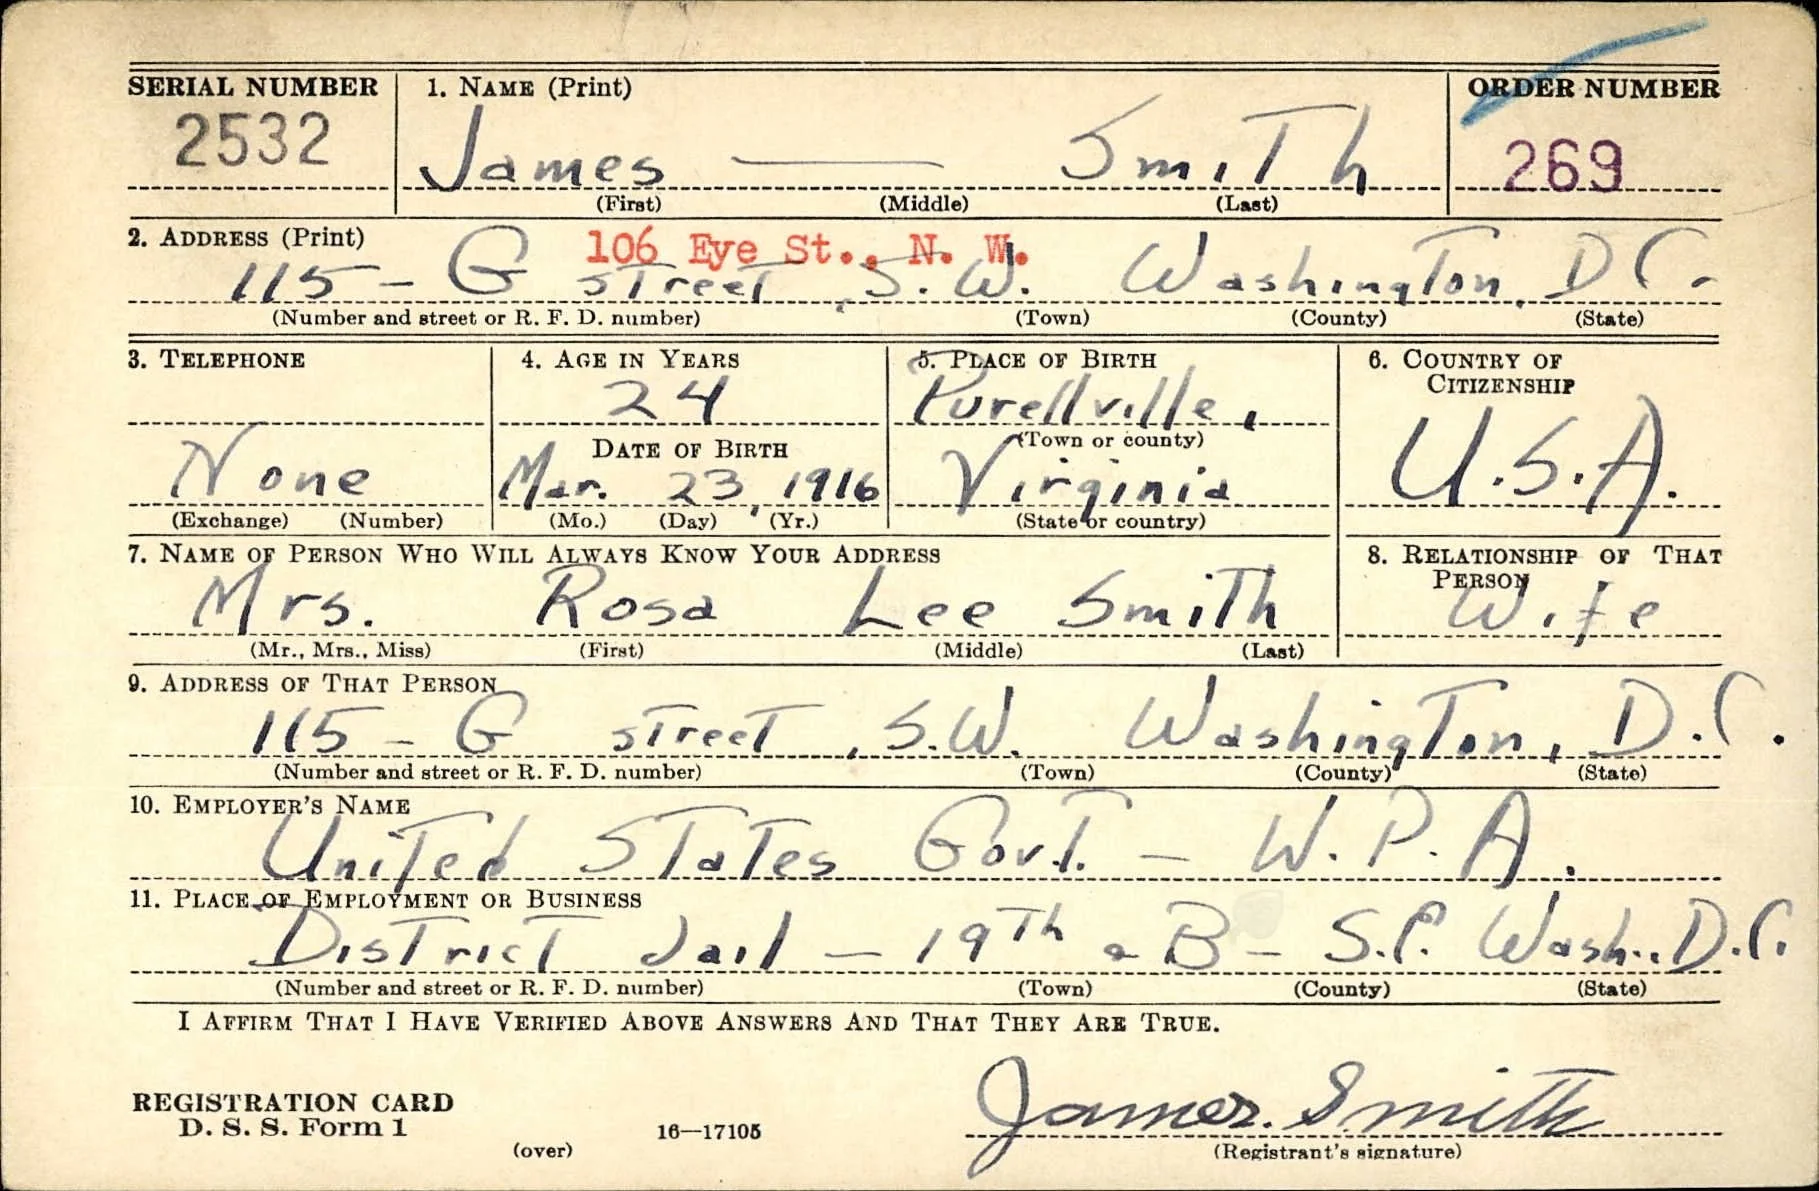 SERIAL NUMBER 1. NAME (Print) ORDER NUMBER
2532 James — Smith 269
(First) (Middle) (Last)
2. ADDRESS (Print) 106 Eye St., N. W.
115 - G street, S.W. Washington, D C.
(Number and street or R. F. D. number) (Town) (County) (State)
3. TELEPHONE 4. AGE IN YEARS 5. PLACE OF BIRTH 6. COUNTRY OF
CITIZENSHIP
24 Purellville,
(Town or county)
DATE OF BIRTH
None Mar. 23, 1916 Virginia U.S.A.
(Exchange) (Number) (Mo.) (Day) (Yr.) (State or country)
7. NAME OF PERSON WHO WILL ALWAYS KNOW YOUR ADDRESS 8. RELATIONSHIP OF THAT
PERSON
Mrs. Rosa Lee Smith Wife
(Mr., Mrs., Miss) (First) (Middle) (Last)
9. ADDRESS OF THAT PERSON
115 - G street, S.W. Washington, D.C.
(Number and street or R. F. D. number) (Town) (County) (State)
10. EMPLOYER'S NAME
United States Govt. - W.P.A.
11. PLACE OF EMPLOYMENT OR BUSINESS
District Jail - 19th & B - S.E. Wash., D.C.
(Number and street or R. F. D. number) (Town) (County) (State)
I AFFIRM THAT I HAVE VERIFIED ABOVE ANSWERS AND THAT THEY ARE TRUE.
James Smith
REGISTRATION CARD
D. S. S. Form 1 16—17105
(over) (Registrant's signature)